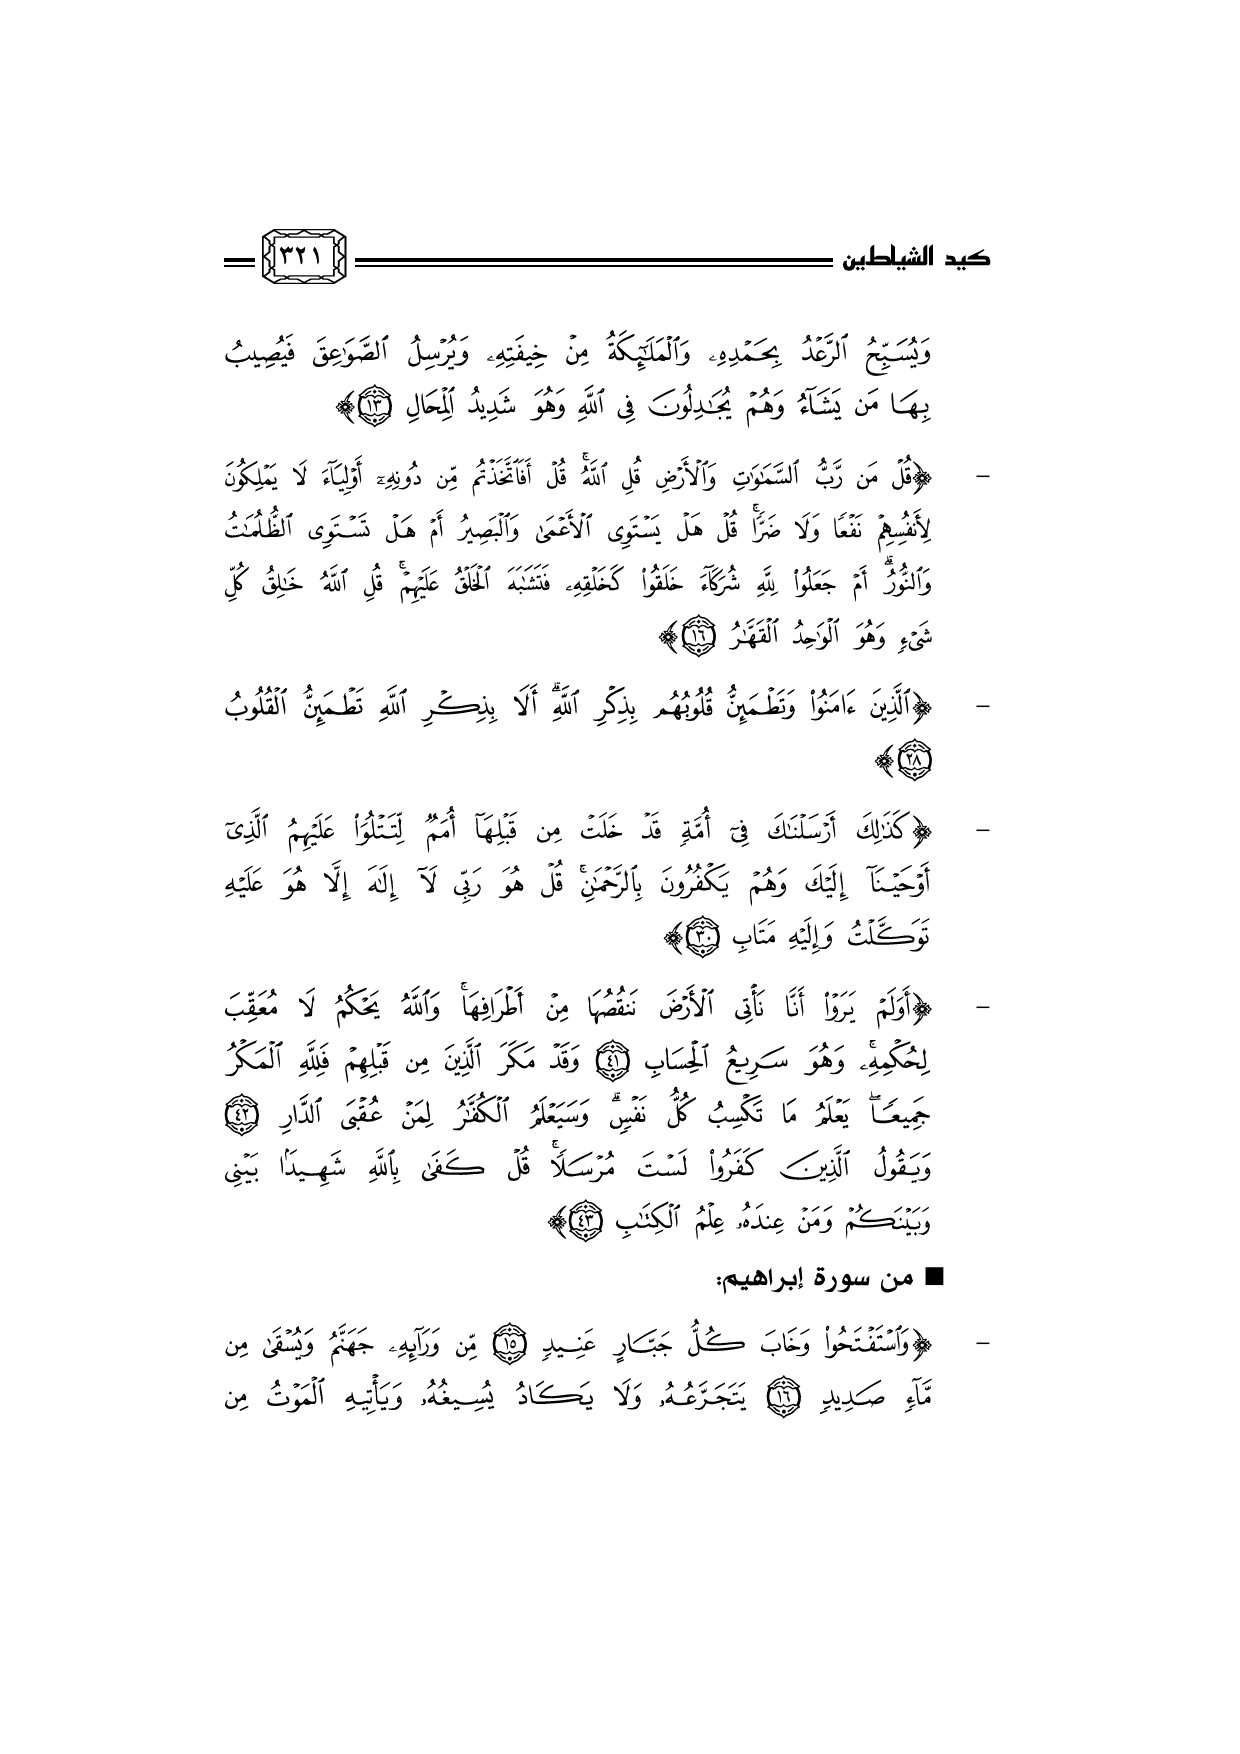 كيد الشياطين ٣٢١
وَيُسَبِّحُ ٱلرَّعۡدُ بِحَمۡدِهِۦ وَٱلۡمَلَٰٓئِكَةُ مِنۡ خِيفَتِهِۦ وَيُرۡسِلُ ٱلصَّوَٰعِقَ فَيُصِيبُ
بِهَا مَن يَشَآءُ وَهُمۡ يُجَٰدِلُونَ فِي ٱللَّهِ وَهُوَ شَدِيدُ ٱلۡمِحَالِ ١٣﴾
- ﴿قُلۡ مَن رَّبُّ ٱلسَّمَٰوَٰتِ وَٱلۡأَرۡضِ قُلِ ٱللَّهُۚ قُلۡ أَفَٱتَّخَذۡتُم مِّن دُونِهِۦٓ أَوۡلِيَآءَ لَا يَمۡلِكُونَ
لِأَنفُسِهِمۡ نَفۡعٗا وَلَا ضَرّٗاۚ قُلۡ هَلۡ يَسۡتَوِي ٱلۡأَعۡمَىٰ وَٱلۡبَصِيرُ أَمۡ هَلۡ تَسۡتَوِي ٱلظُّلُمَٰتُ
وَٱلنُّورُۗ أَمۡ جَعَلُواْ لِلَّهِ شُرَكَآءَ خَلَقُواْ كَخَلۡقِهِۦ فَتَشَٰبَهَ ٱلۡخَلۡقُ عَلَيۡهِمۡۚ قُلِ ٱللَّهُ خَٰلِقُ كُلِّ
شَيۡءٖ وَهُوَ ٱلۡوَٰحِدُ ٱلۡقَهَّٰرُ ١٦﴾
- ﴿ٱلَّذِينَ ءَامَنُواْ وَتَطۡمَئِنُّ قُلُوبُهُم بِذِكۡرِ ٱللَّهِۗ أَلَا بِذِكۡرِ ٱللَّهِ تَطۡمَئِنُّ ٱلۡقُلُوبُ
٢٨﴾
- ﴿كَذَٰلِكَ أَرۡسَلۡنَٰكَ فِيٓ أُمَّةٖ قَدۡ خَلَتۡ مِن قَبۡلِهَآ أُمَمٞ لِّتَتۡلُوَاْ عَلَيۡهِمُ ٱلَّذِيٓ
أَوۡحَيۡنَآ إِلَيۡكَ وَهُمۡ يَكۡفُرُونَ بِٱلرَّحۡمَٰنِۚ قُلۡ هُوَ رَبِّي لَآ إِلَٰهَ إِلَّا هُوَ عَلَيۡهِ
تَوَكَّلۡتُ وَإِلَيۡهِ مَتَابِ ٣٠﴾
- ﴿أَوَلَمۡ يَرَوۡاْ أَنَّا نَأۡتِي ٱلۡأَرۡضَ نَنقُصُهَا مِنۡ أَطۡرَافِهَاۚ وَٱللَّهُ يَحۡكُمُ لَا مُعَقِّبَ
لِحُكۡمِهِۦۚ وَهُوَ سَرِيعُ ٱلۡحِسَابِ ٤١ وَقَدۡ مَكَرَ ٱلَّذِينَ مِن قَبۡلِهِمۡ فَلِلَّهِ ٱلۡمَكۡرُ
جَمِيعٗاۖ يَعۡلَمُ مَا تَكۡسِبُ كُلُّ نَفۡسٖۗ وَسَيَعۡلَمُ ٱلۡكُفَّٰرُ لِمَنۡ عُقۡبَى ٱلدَّارِ ٤٢
وَيَقُولُ ٱلَّذِينَ كَفَرُواْ لَسۡتَ مُرۡسَلٗاۚ قُلۡ كَفَىٰ بِٱللَّهِ شَهِيدَۢا بَيۡنِي
وَبَيۡنَكُمۡ وَمَنۡ عِندَهُۥ عِلۡمُ ٱلۡكِتَٰبِ ٤٣﴾
■ من سورة إبراهيم:
- ﴿وَٱسۡتَفۡتَحُواْ وَخَابَ كُلُّ جَبَّارٍ عَنِيدٖ ١٥ مِّن وَرَآئِهِۦ جَهَنَّمُ وَيُسۡقَىٰ مِن
مَّآءٖ صَدِيدٖ ١٦ يَتَجَرَّعُهُۥ وَلَا يَكَادُ يُسِيغُهُۥ وَيَأۡتِيهِ ٱلۡمَوۡتُ مِن